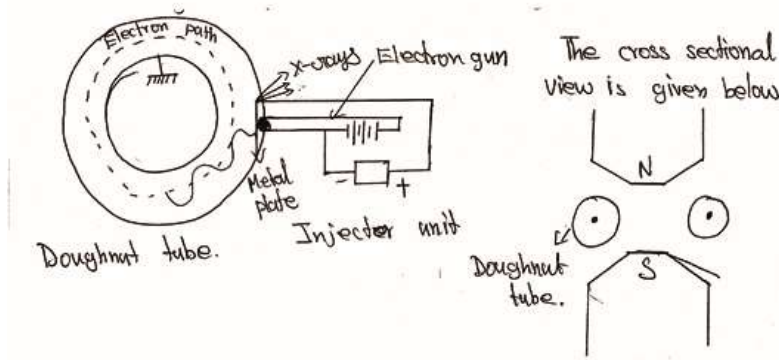 Electron path
x-rays
Electron gun
Metal
plate
- +
Injector unit
Doughnut tube.
The cross sectional
view is given below
N
S
Doughnut
tube.